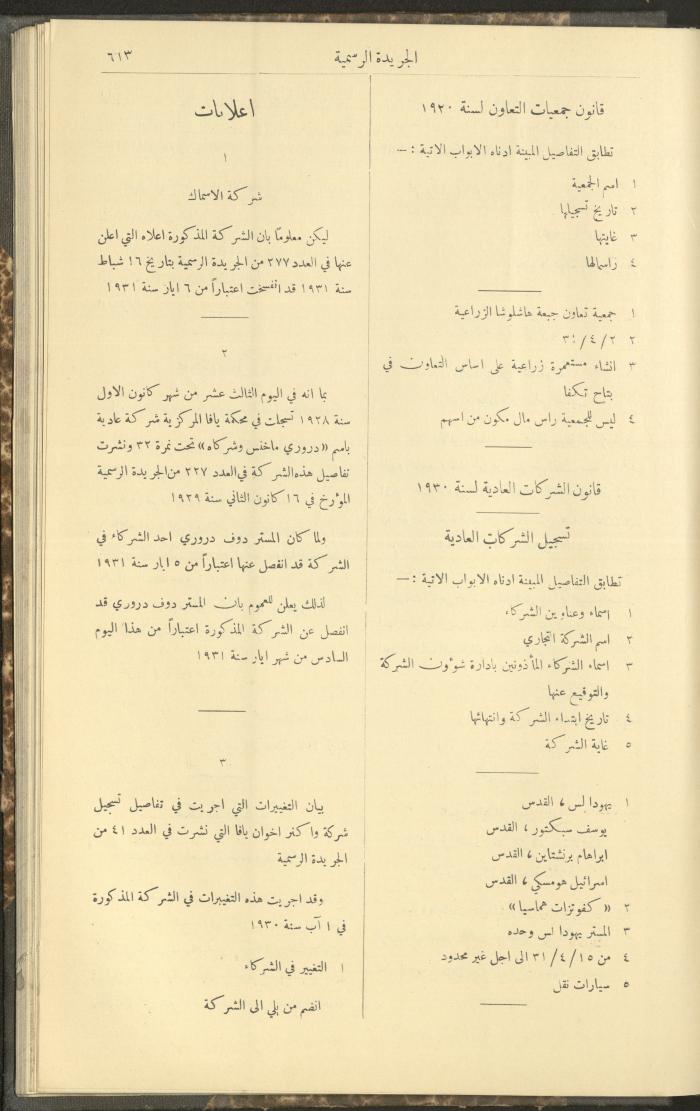 الجريدة الرسمية
٦١٣
قانون جمعيات التعاون لسنة ١٩٢٠
تطابق التفاصيل المبينة ادناه الابواب الاتية : —
١ اسم الجمعية
٢ تاريخ تسجيلها
٣ غايتها
٤ راسمالها
١ جمعية تعاون جبعة هاشلوشا الزراعية
٢ ٢ / ٤ / ٣١
٣ انشاء مستعمرة زراعية على اساس التعاون في
بتاح تكفا
٤ ليس للجمعية راس مال مكون من اسهم
قانون الشركات العادية لسنة ١٩٣٠
تسجيل الشركات العادية
تطابق التفاصيل المبينة ادناه الابواب الاتية : —
١ اسماء وعناوين الشركاء
٢ اسم الشركة التجاري
٣ اسماء الشركاء المأذونين بادارة شوٴون الشركة
والتوقيع عنها
٤ تاريخ ابتداء الشركة وانتهائها
٥ غاية الشركة
١ يهودا لس ، القدس
يوسف سبكتور ، القدس
ابراهام برنشتاين ، القدس
اسرائيل هومسكي ، القدس
٢ « كفوتزات هماسيا »
٣ المستر يهودا لس وحده
٤ من ١٥ / ٤ / ٣١ الى اجل غير محدود
٥ سيارات نقل
اعلانات
١
شركة الاسماك
ليكن معلومًا بان الشركة المذكورة اعلاه التي اعلن
عنها في العدد ٢٧٧ من الجريدة الرسمية بتاريخ ١٦ شباط
سنة ١٩٣١ قد انفسخت اعتباراً من ٦ ايار سنة ١٩٣١
٢
بما انه في اليوم الثالث عشر من شهر كانون الاول
سنة ١٩٢٨ تسجلت في محكمة يافا المركزية شركة عادية
باسم « دروري ماخنس وشركاه » تحت نمرة ٣٢ ونشرت
تفاصيل هذه الشركة في العدد ٢٢٧ من الجريدة الرسمية
الموٴرخ في ١٦ كانون الثاني سنة ١٩٢٩
ولما كان المستر دوف دروري احد الشركاء في
الشركة قد انفصل عنها اعتباراً من ٥ ايار سنة ١٩٣١
لذلك يعلن للعموم بان المستر دوف دروري قد
انفصل عن الشركة المذكورة اعتباراً من هذا اليوم
السادس من شهر ايار سنة ١٩٣١
٣
بيان التغييرات التي اجريت في تفاصيل تسجيل
شركة واكنر اخوان يافا التي نشرت في العدد ٤١ من
الجريدة الرسمية
وقد اجريت هذه التغييرات في الشركة المذكورة
في ١ آب سنة ١٩٣٠
١ التغيير في الشركاء
انضم من يلي الى الشركة